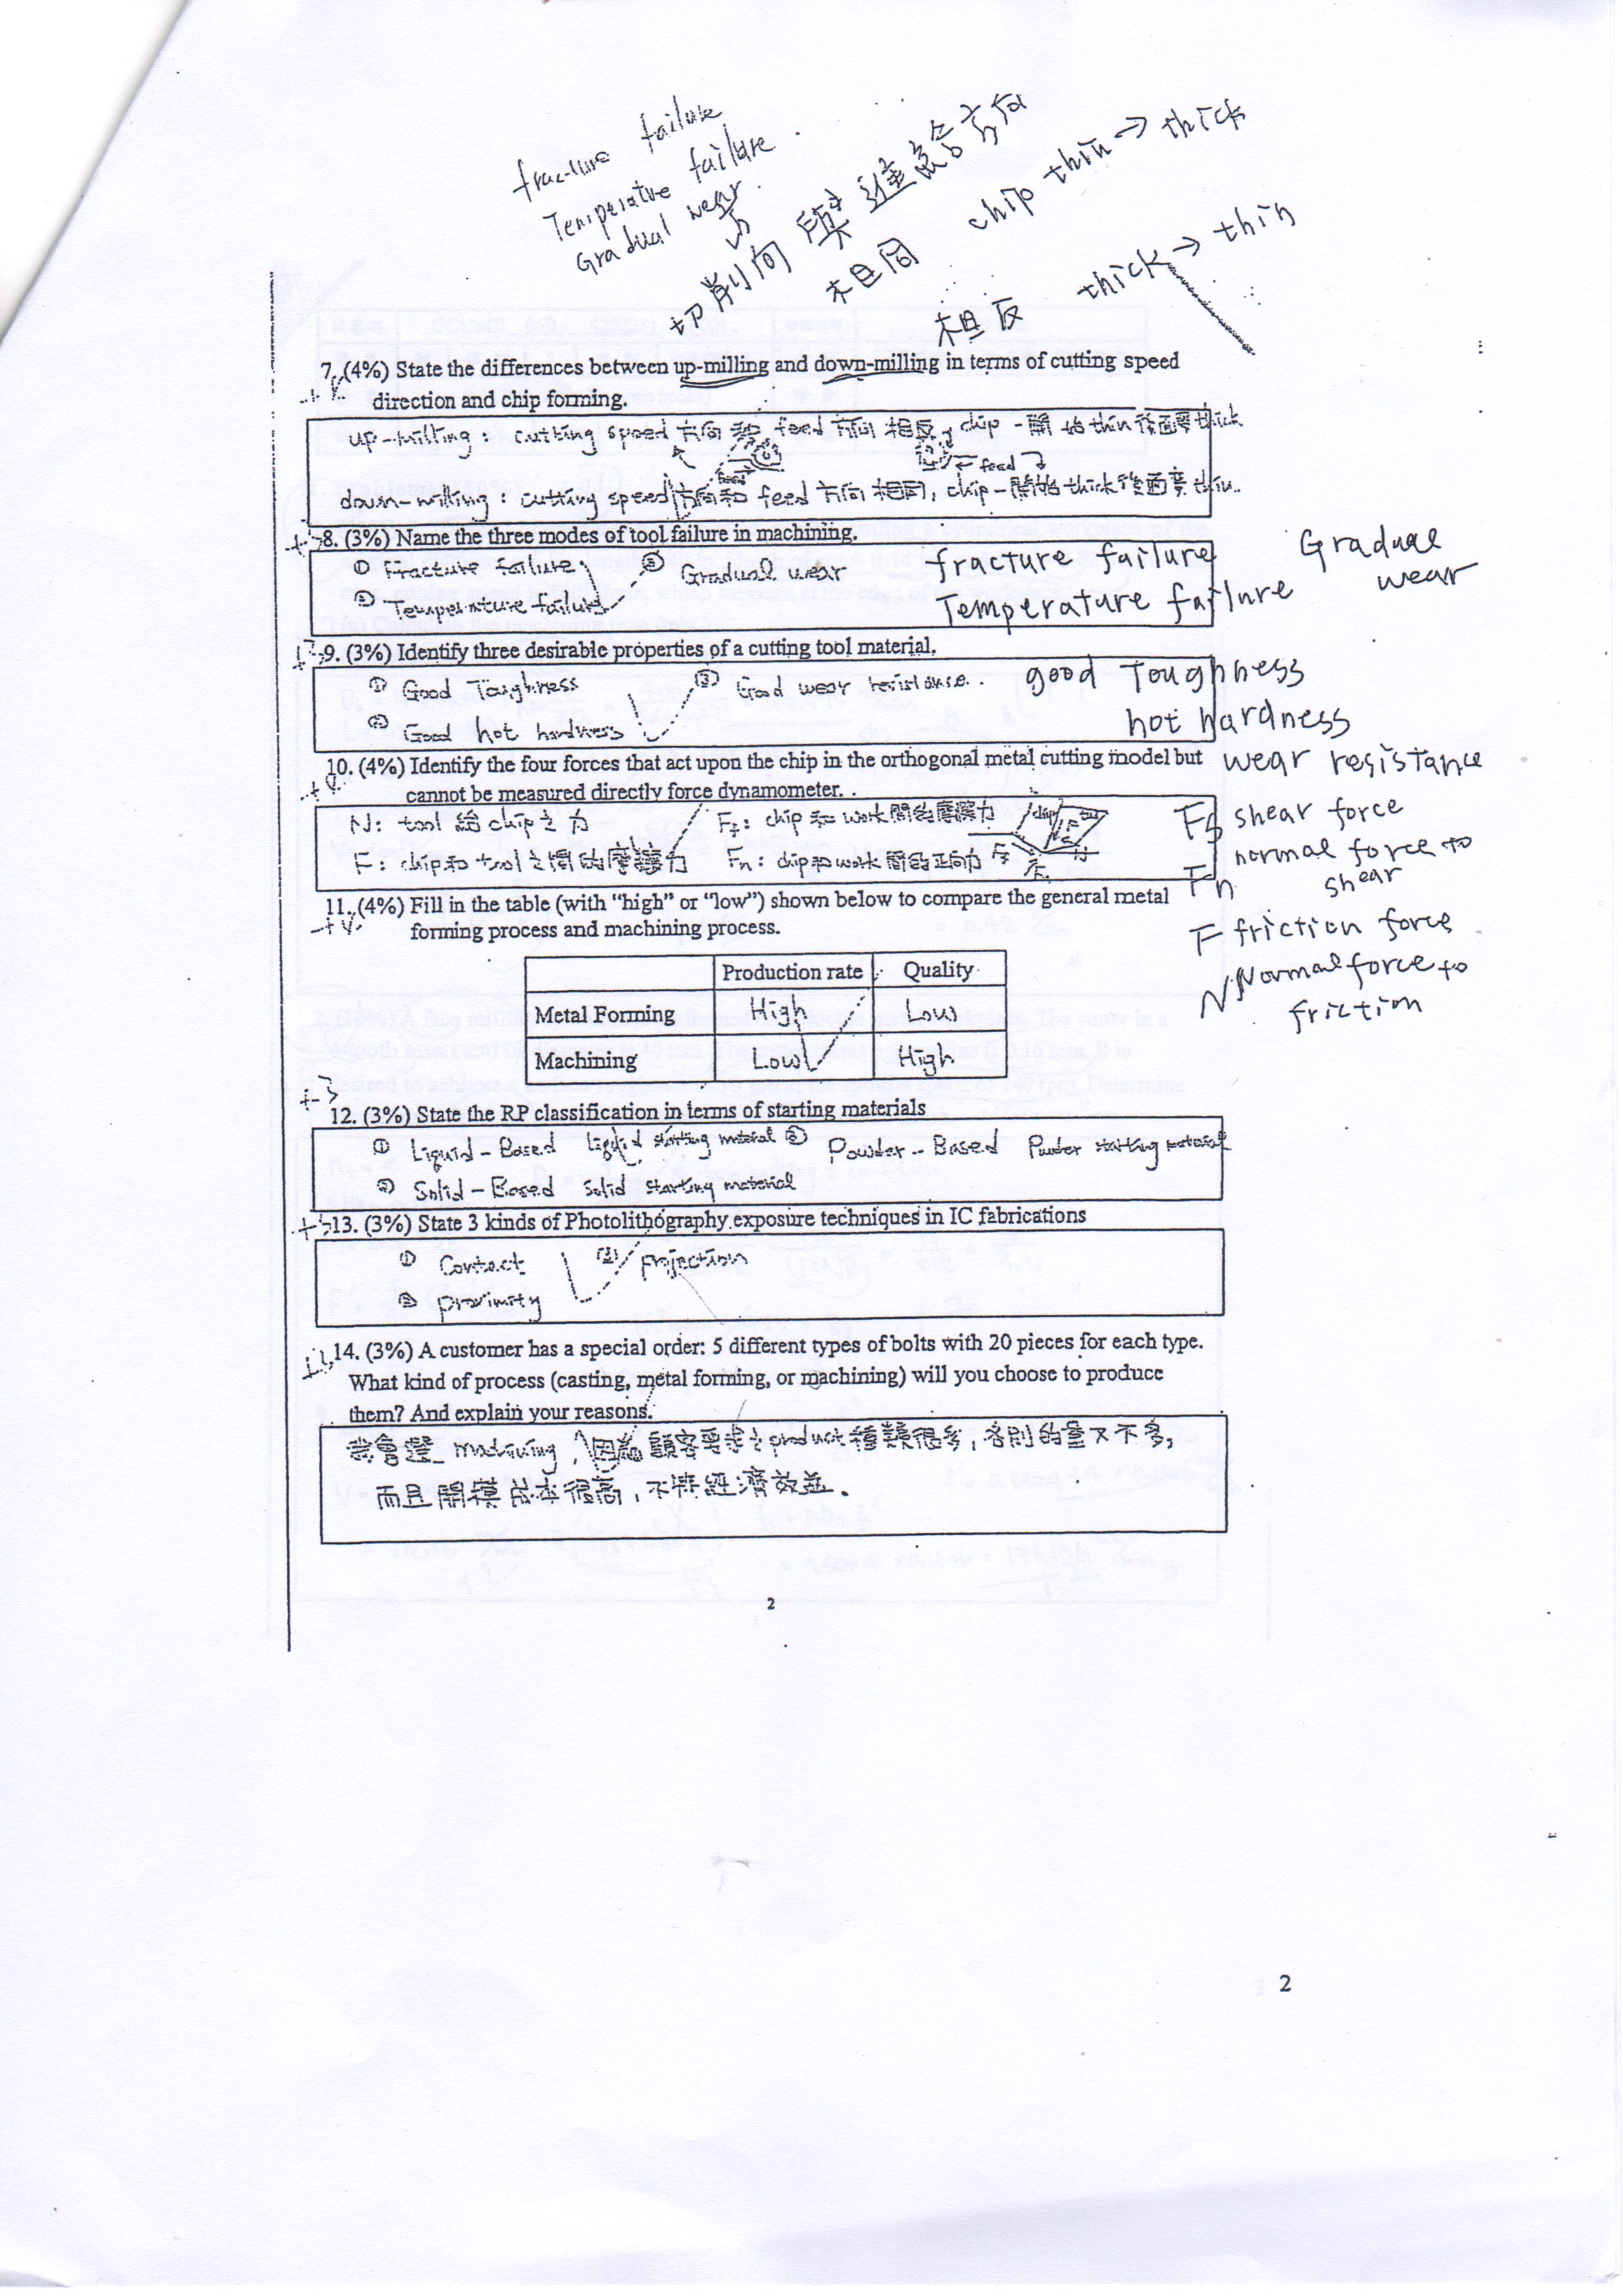 fracture failure
Temperature failure
Gradual wear
切削方向 與 進給方向
相同 chip thin → thick
相反 thick → thin
7. (4%) State the differences between up-milling and down-milling in terms of cutting speed
direction and chip forming.
up-milling: cutting speed 方向和 feed 方向相反, chip 一開始 thin 後面變 thick
feed
← feed
down-milling: cutting speed 方向和 feed 方向相同, chip 一開始 thick 後面變 thin.
+3 8. (3%) Name the three modes of tool failure in machining.
① Fracture failure ③ Gradual wear
② Temperature failure
fracture failure
Temperature failure
Gradual
wear
+3 9. (3%) Identify three desirable properties of a cutting tool material.
① Good Toughness ③ Good wear resistance.
② Good hot hardness
good Toughness
hot hardness
wear resistance
+4 10. (4%) Identify the four forces that act upon the chip in the orthogonal metal cutting model but
cannot be measured directly force dynamometer.
N: tool 給 chip 之力 chip 和 work 間的摩擦力
F: chip 和 tool 之間的摩擦力 Fn: chip 和 work 間的正向力
chip
Fs shear force
Fn normal force to
shear
F friction force
N Normal force to
friction
+4 11. (4%) Fill in the table (with “high” or “low”) shown below to compare the general metal
forming process and machining process.
Production rate Quality
Metal Forming High Low
Machining Low High
+3
12. (3%) State the RP classification in terms of starting materials
① Liquid-Based liquid starting material ③ Powder-Based Powder starting material
② Solid-Based solid starting material
+3 13. (3%) State 3 kinds of Photolithography exposure techniques in IC fabrications
① Contact ③ projection
② proximity
14. (3%) A customer has a special order: 5 different types of bolts with 20 pieces for each type.
What kind of process (casting, metal forming, or machining) will you choose to produce
them? And explain your reasons.
我會選 machining, 因為顧客要求之 product 種類很多, 各別的量又不多,
而且開模成本很高, 不符經濟效益.
2
2